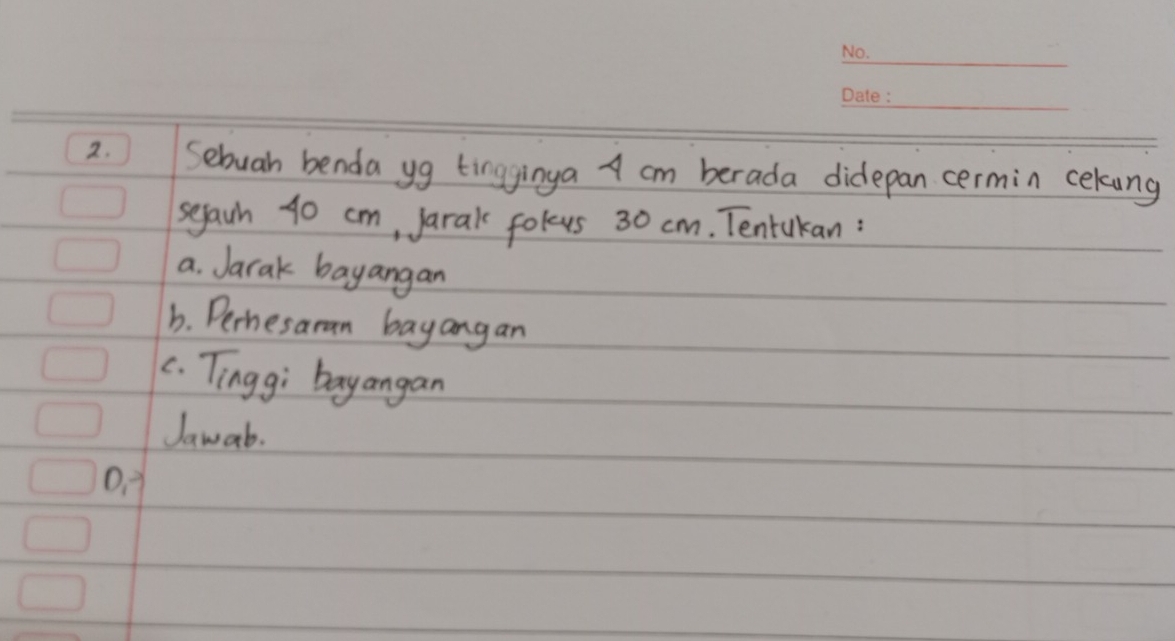 No.
Date :
2. Sebuah benda yg tingginya 4 cm berada didepan cermin cekung
sejauh 40 cm, jarak fokus 30 cm. Tentukan :
a. Jarak bayangan
b. Perbesaran bayangan
c. Tinggi bayangan
Jawab.
D₁→